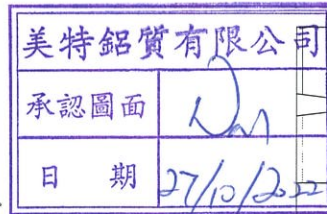 美特鋁質有限公司
承認圖面
日 期 27/10/2022